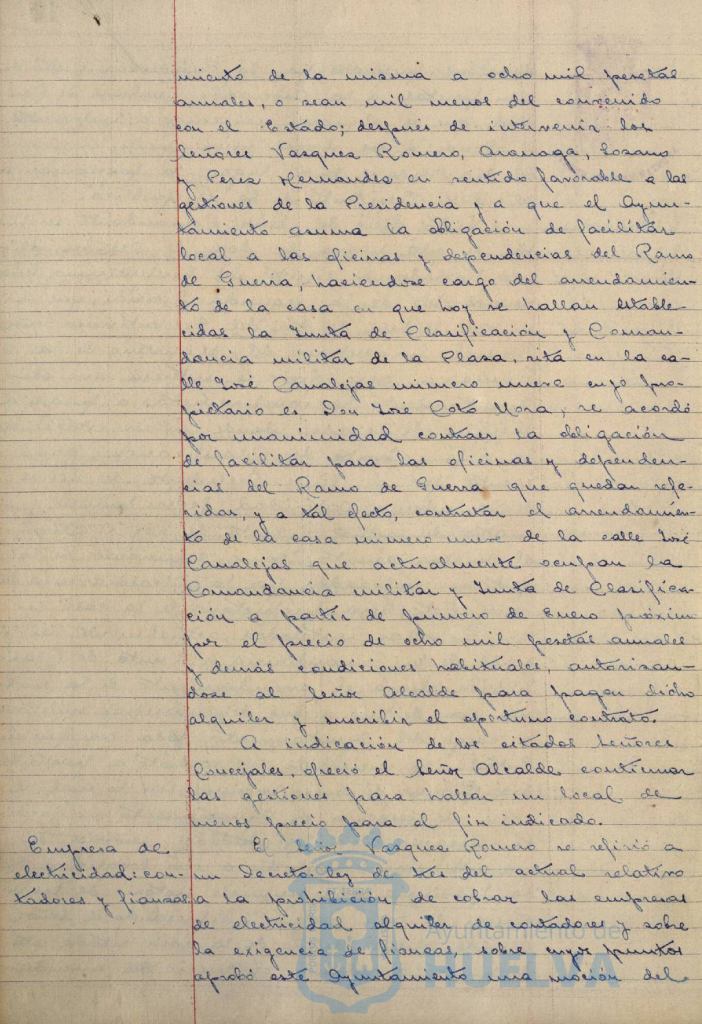 miento de la misma a ocho mil pesetas
anuales, o sean mil menos del convenido
con el Estado; después de intervenir los
Señores Vasquez Romero, Aranaga, Lozano
y Perez Hernandez en sentido favorable a las
gestiones de la Presidencia y a que el Ayun-
tamiento asuma la obligación de facilitar
local a las oficinas y dependencias del Ramo
de Guerra, haciendose cargo del arrendamien-
to de la casa en que hoy se hallan estable-
cidas la Junta de Clasificación y Coman-
dancia militar de la Plaza, sita en la ca-
lle José Canalejas número nueve cuyo pro-
pietario es Don José Coto Mora, se acordó
por unanimidad contraer la obligación
de facilitar para las oficinas y dependen-
cias del Ramo de Guerra que quedan refe-
ridas, y a tal efecto, contratar el arrendamien-
to de la casa número nueve de la calle José
Canalejas que actualmente ocupan la
Comandancia militar y Junta de Clasifica-
ción a partir de primero de Enero próximo
por el precio de ocho mil pesetas anuales
y demás condiciones habituales, autorizan-
dose al Señor Alcalde para pagar dicho
alquiler y suscribir el oportuno contrato.
A indicación de los citados Señores
Concejales, ofreció el Señor Alcalde continuar
las gestiones para hallar un local de
menos precio para el fin indicado.
Empresa de
electricidad: con-
tadores y fianzas
El Señor Vasquez Romero se refirió a
un Decreto-ley de tres del actual relativo
a la prohibición de cobrar las empresas
de electricidad alquiler de contadores y sobre
la exigencia de fianzas, sobre cuyos puntos
aprobó este Ayuntamiento una moción del
Ayuntamiento de
HUELVA